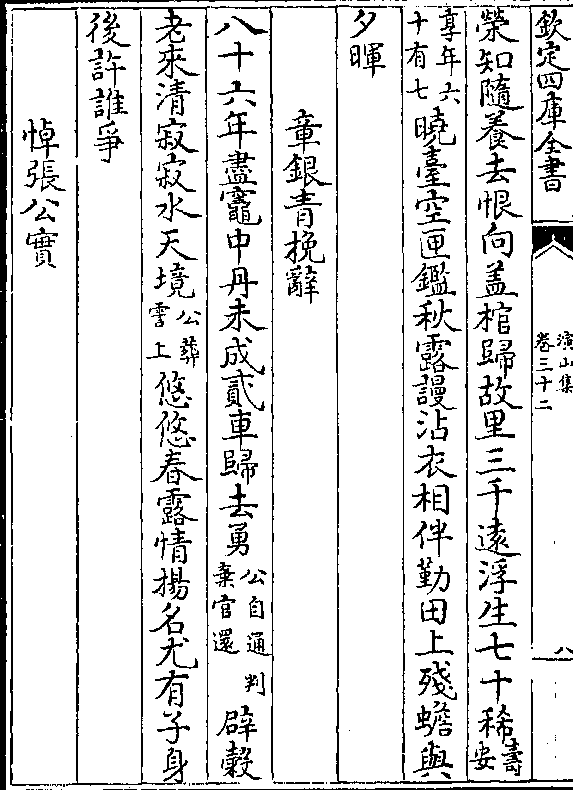 欽定四庫全書
演山集
卷三十二
八
榮知隨養去恨向盖棺歸故里三千逺浮生七十稀壽安
享年六十有七曉臺空匣鑑秋露謾沾衣相伴勤田上殘蟾與
夕暉
章銀青挽辭
八十六年盡竈中丹未成貳車歸去勇公自通判棄官還辟榖
老來清寂寂水天境公葬霅上悠悠春露情揚名尤有子身
後許誰爭
悼張公實